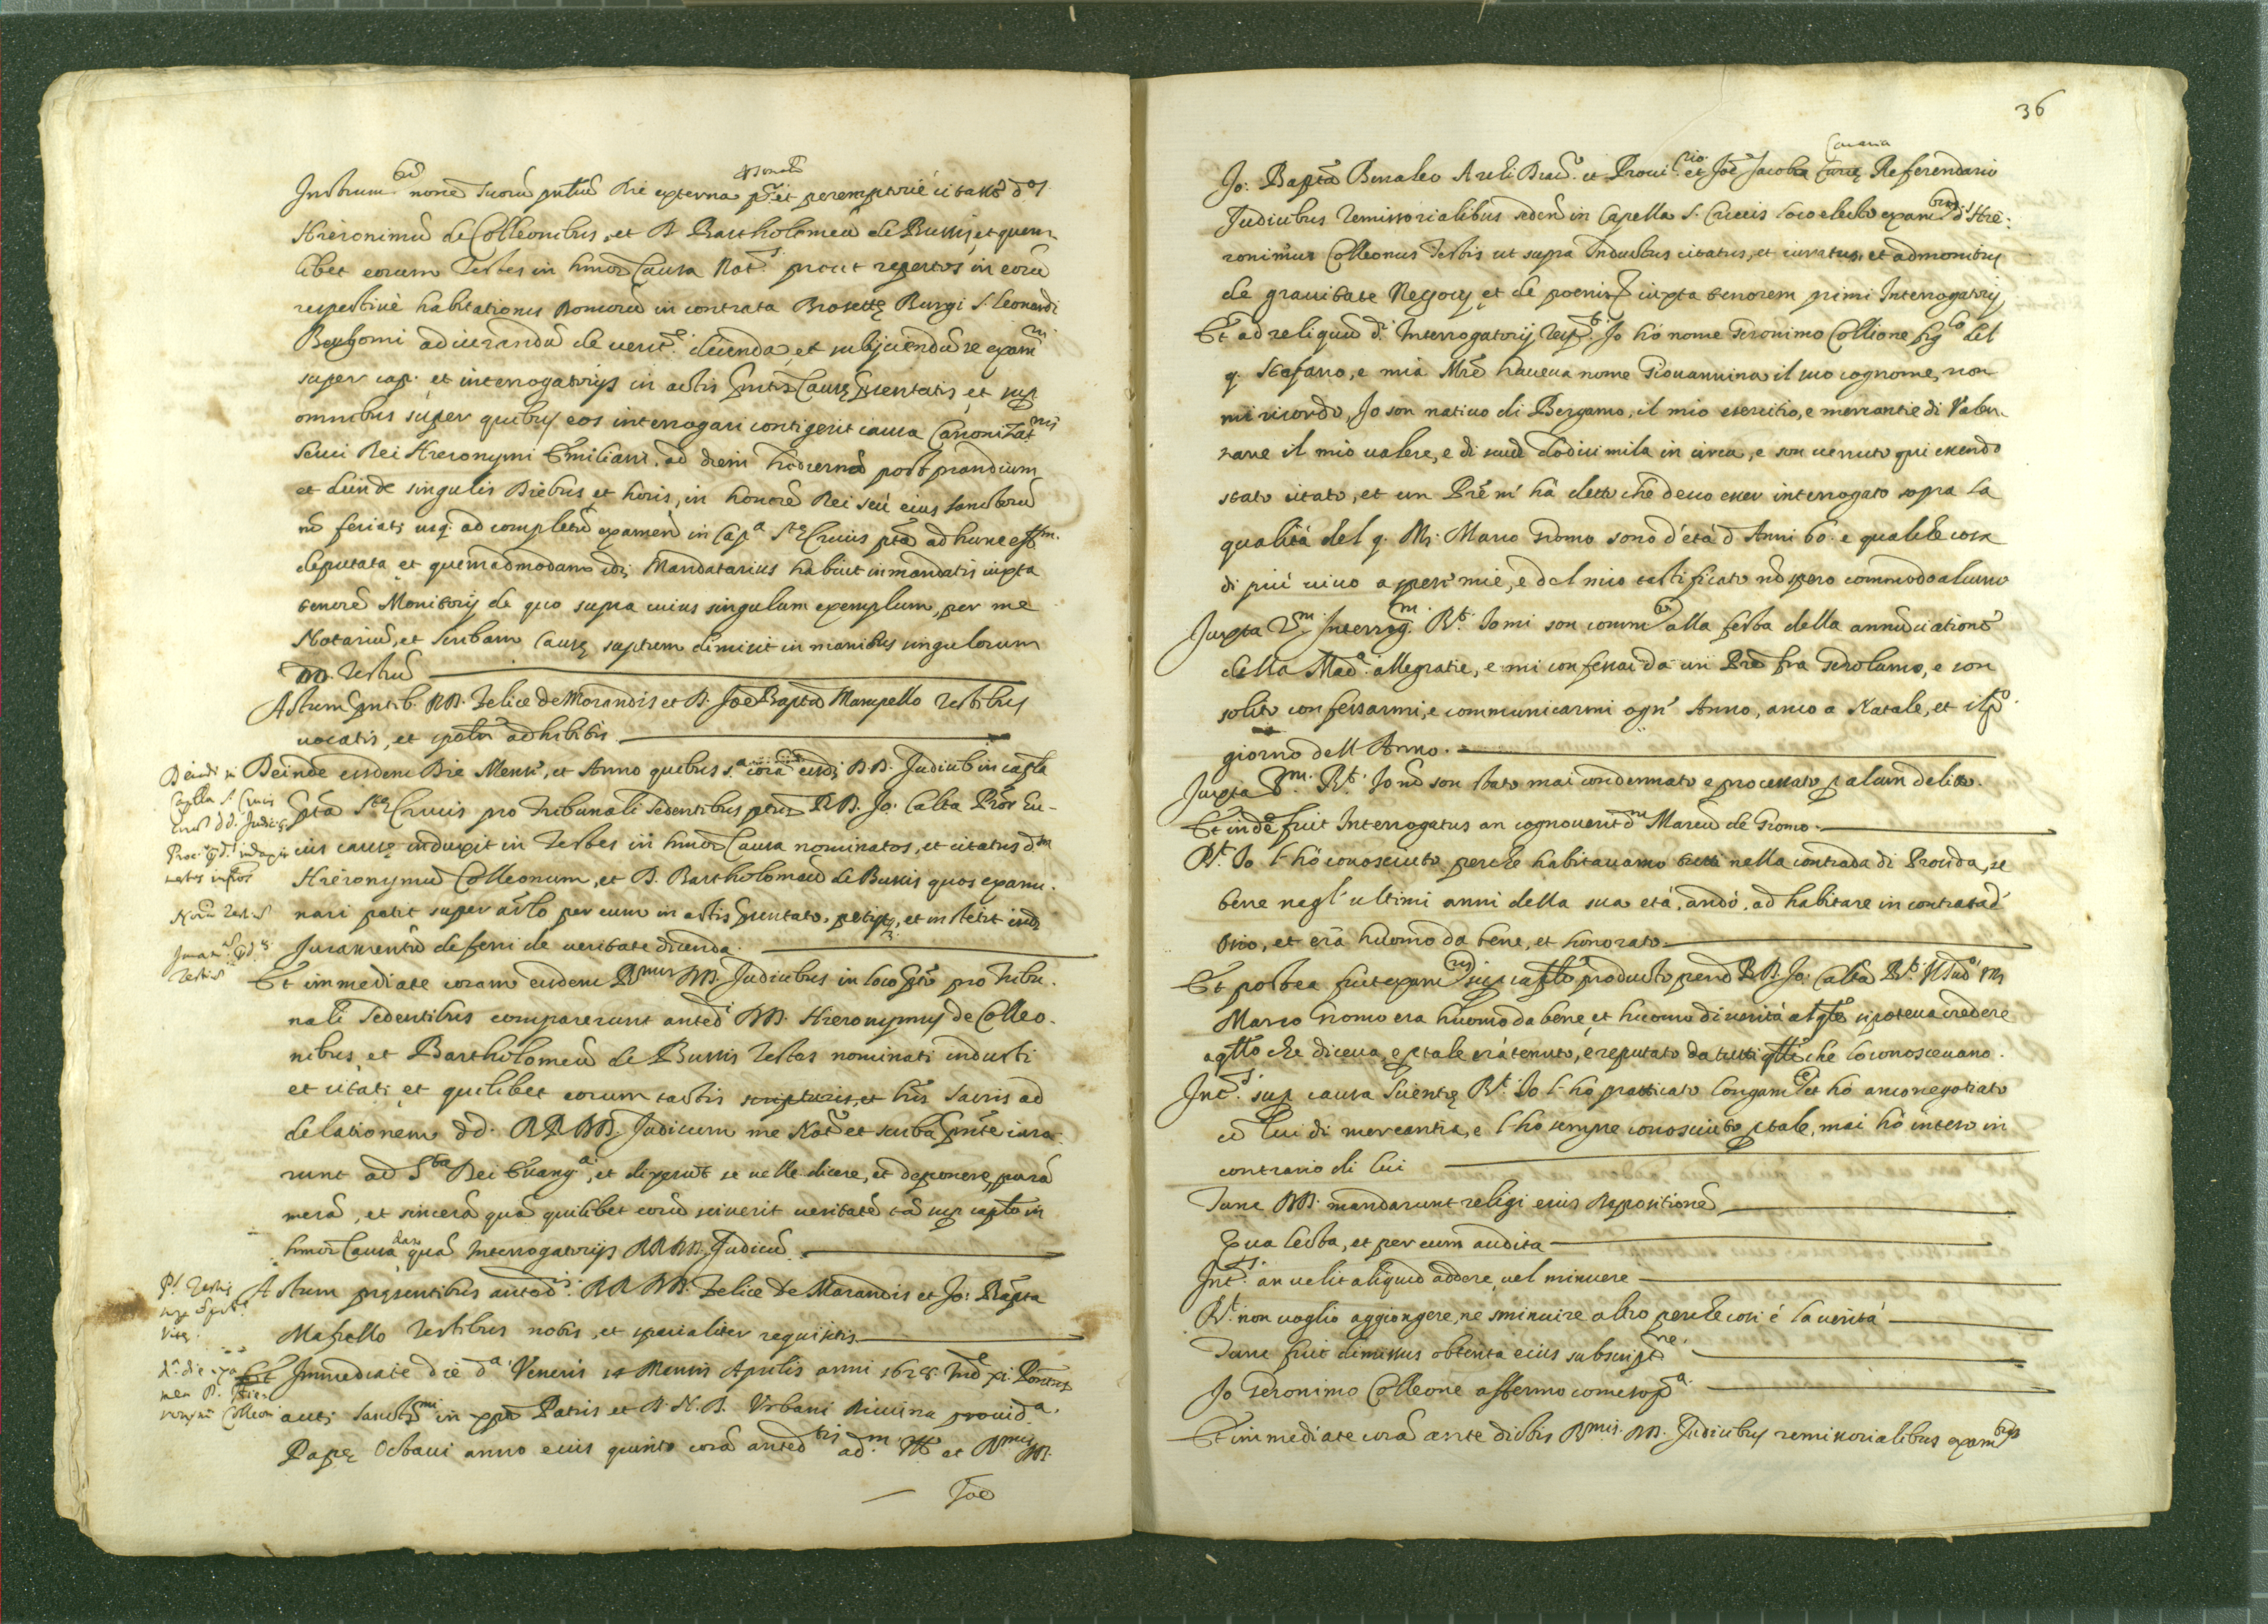 Instrum.tũ nonẽ suorũ pntiũ die externa p.r et peremptoriè citasse d.os
Hieronimũ de Colleonibus, et D. Bartholomeũ de Bussis, et quem
libet eorum Testes in hmõi Causa Not.s prout repertos in eorũ
respectivè habitationis Domorũ in contrata Brosettę Burgi S. Leonardi
Bergomi ad iurandũ de verit.e dicenda, et subijciendũ se exam.ni
super cap. et interrogatorijs in actis pntis Causę presentatis, et sup
omnibus super quibus eos interrogari contigerit causa Canonizat.nis
Servi Dei Hieronymi Emiliani, ad diem hodiernã post prandium
et deinde singulis diebus et horis, in honorẽ Dei seù eius Sanctorũ
nõ feriatis usq. ad completũ examen in Cap.a S.tę Crucis ptã ad hunc eff.m
deputata et quemadmodum idẽ Mandatarius habuit in mandatis iuxta
tenorẽ Monitorij de quo supra cuius singulum exemplum, per me
Notariũ, et Scribam Causę saptum dimisit in manibus singulorum
DD. Testiũ
Actum pntib. RR. Felice de Morandis et D. Joẽ Bapta Mampello Testibus
vocatis, et spãlr adhibitis
Deinde eisdem Die Mense, et Anno quibus s.a corã eisdẽ DD. Judicib. in capla
pta S.tę Crucis pro Tribunali sedentibus ptus R.D. Jo: Calta Prõr hu-
ius causę induxit in Testes in hmõi Causa nominatos, et citatos d.m
Hieronymũ Colleonum, et D. Bartholomeũ de Bussis quos exami-
nari petit super arlo per eum in actis pntato, petijt, et institit eisdẽ
Juramentũ deferri de veritate dicenda.
Et immediate coram eisdem R.mis DD. Judicibus in loco pto pro Tribu-
nali sedentibus comparerunt anted.i DD. Hieronymus de Colleo-
nibus, et Bartholomeũ de Bussis Testes nominati inducti
et citati, et quilibet eorum tactis scripturis, et lris Sacris ad
delationem dd. RR. DD. Judicum me Not.o et scriba pnte iura-
runt ad S.ta Dei Evang.a, et dixerũt se velle dicere, et deponere, purã
merã, et sincerã quã quilibet eorũ sciverit veritatẽ tã sup caplo in
hmõi Causa dato quã Interrogatorijs RR. DD. Judicũ
Actum pręsentibus anted.is RR. DD. Felice de Morandis et Jo: Bapta
Mapello Testibus notis, et specialiter requisitis
Et Immediatè die d.a Veneris 14 Mensis Aprilis anni 1628. Ind.e xi. Pontus
aut, Sanct.mi in xpõ Patris et D.N.D. Urbani Divina provid.a
Papę Octavi anno eius quinto corã anted.tis ad.m Ill. et R.mis DD.
Joẽ
Deinde in
Capella S. Crucis
corã dd. Judicib.
Proc. pd. induxit
testes infros
Nom Testiũ
Jurat. pd.
Testiũ
P.s Testis
sup
vitę
d. die exa
men D. Hie
ronymi Colleoni
36
Jo: Bapta Benaleo Archi Diac.o et Provi.rio et Joẽ Jacobo Curię Referendario
Cavaria
Judicibus remissorialibus seden. in Capella S. Crucis loco electo exam.tus d. Hie-
ronimus Colleonus Testis ut supra Inductus citatus, et iuratus, et admonitus
de gravitate Negocij, et de poenis iuxta tenorem primi Interrogatorij,
Et ad reliquũ d.i Interrogatorij resp.t Jo hò nome Geronimo Collione fig.lo del
q. Stefano, e mia Mrẽ haveva nome Giovannina il suo cognome, non
mi ricordo, Jo son nativo di Bergamo, il mio esercitio, e mercantie di
il mio valere, e di scudi dodici mila in circa, e son venuto qui essendo
stato citato, et un Prẽ m'hà detto che devo esser interrogato sopra la
qualità del q. M: Marco Gromo sono d'età d Anni 60 e qualche cosa
di più vivo a spese mie, e del mio testificato nõ spero commodo alcuno
Juxta 2.m Interrog.m R.t Jo mi son comm.to alla festa della annũciationè
della Mad.a allegratie, e mi confessai da un Prẽ fra Gerolamo, e son
solito confessarmi, e communicarmi ogn' Anno, anco a Natale, et il p.o
giorno dell Anno.
Juxta 3.m R.t Jo nõ son stato mai condennato e processato p alcun delito.
Et indè fuit Interrogatus an cognoverit d.m Marcũ de Gromo
R.t Jo l'hò conosciuto perche habitavamo tutti nella contrada di Broseda, se
bene negl'ultimi anni della sua età, andò, ad habitare in contrada d
Osio, et erà huomo da bene, et honorato
Et postea fuit exam.tus sup caplo producto per d. R.D. Jo: Calta R.t Il sud.o M
Marco Gromo era huomo da bene et huomo di verità al qle si poteva credere
a qllo che diceva, e p tale erà tenuto, e reputato da tutti qlli che lo conoscevano.
Int.s sup causa scientię R.t Jo l'hò pratticato longam.te et hò anco negotiato
cũ lui di mercantia, e l'hò sempre conosciuto p tale, mai hò inteso in
contrario di lui
Tunc DD. mandarunt relegi eius Depositionẽ
Qua lecta, et per eum audita
Int.s an velit aliquid addere, vel minuere
R.t non voglio aggiongere, ne sminuire altro perche così è la verità
Tunc fuit dimissus obtenta eius subscript.ne
Jo Geronimo Colleone affermo come sop.a
Et immediate corã ante dictis R.mis DD. Judicibus remissorialibus exam.tus